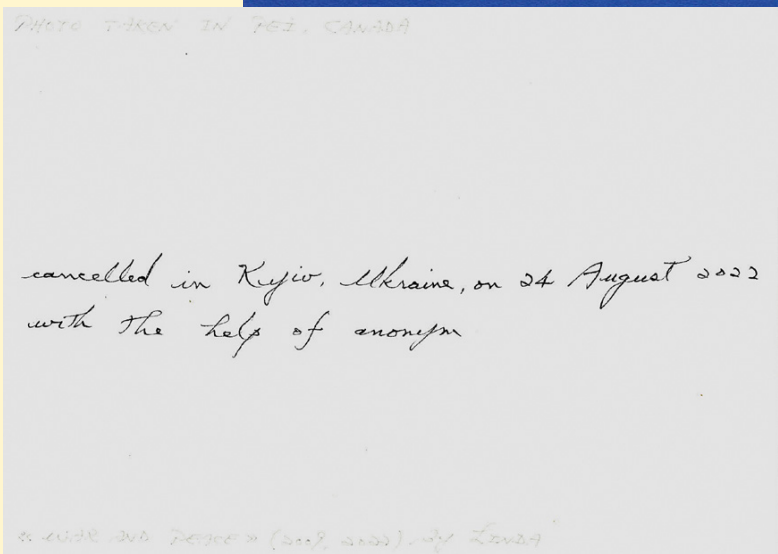 PHOTO TAKEN IN PEI, CANADA
cancelled in Kyjiv, Ukraine, on 24 August 2022
with the help of anonym
« WAR AND PEACE » (2009, 2022), by LINDA